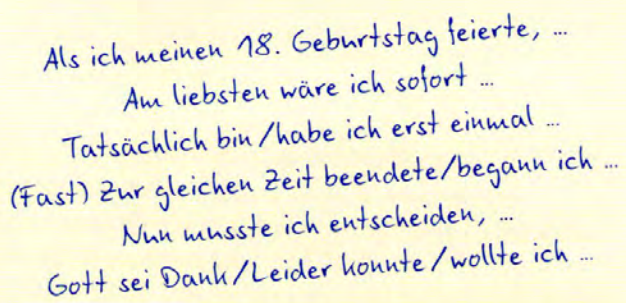 Als ich meinen 18. Geburtstag feierte, ...
Am liebsten wäre ich sofort ...
Tatsächlich bin/habe ich erst einmal ...
(Fast) Zur gleichen Zeit beendete/begann ich ...
Nun musste ich entscheiden, ...
Gott sei Dank/Leider konnte/wollte ich ...